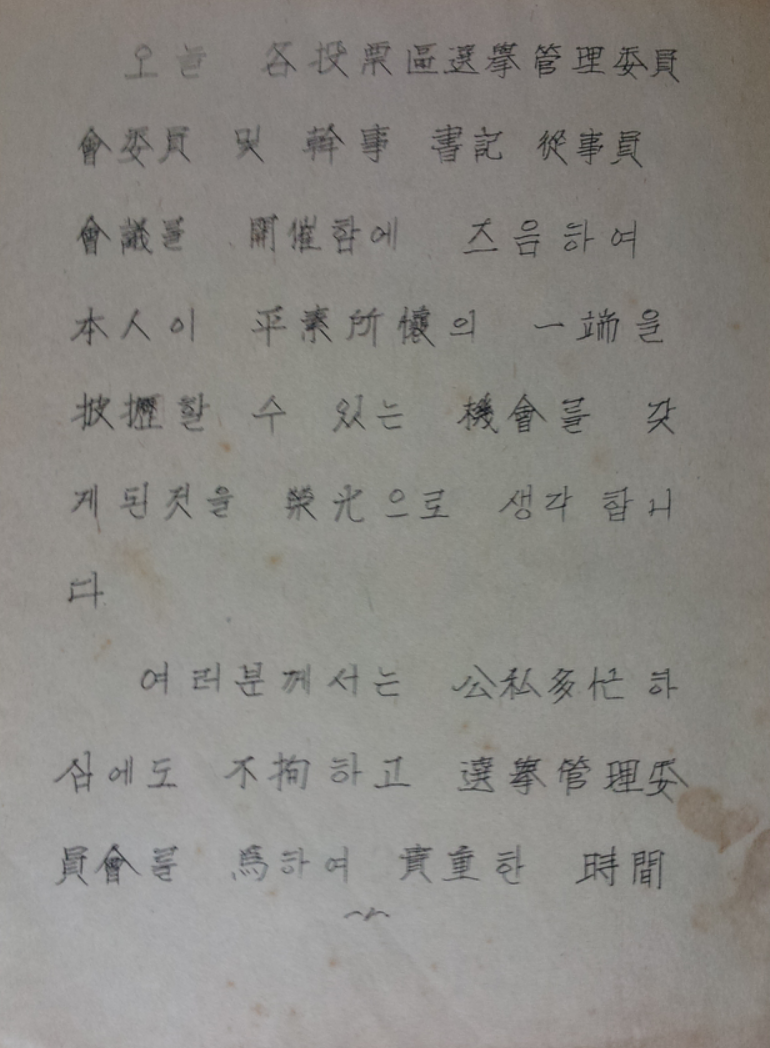 오늘 各投票區選擧管理委員
會委員 및 幹事 書記 從事員
會議를 開催함에 즈음하여
本人이 平素所懷의 一端을
披攊할 수 있는 機會를 갖
게된것을 榮光으로 생각 합니
다
여러분께서는 公私多忙 하
심에도 不拘하고 選擧管理委
員會를 爲하여 貴重한 時間